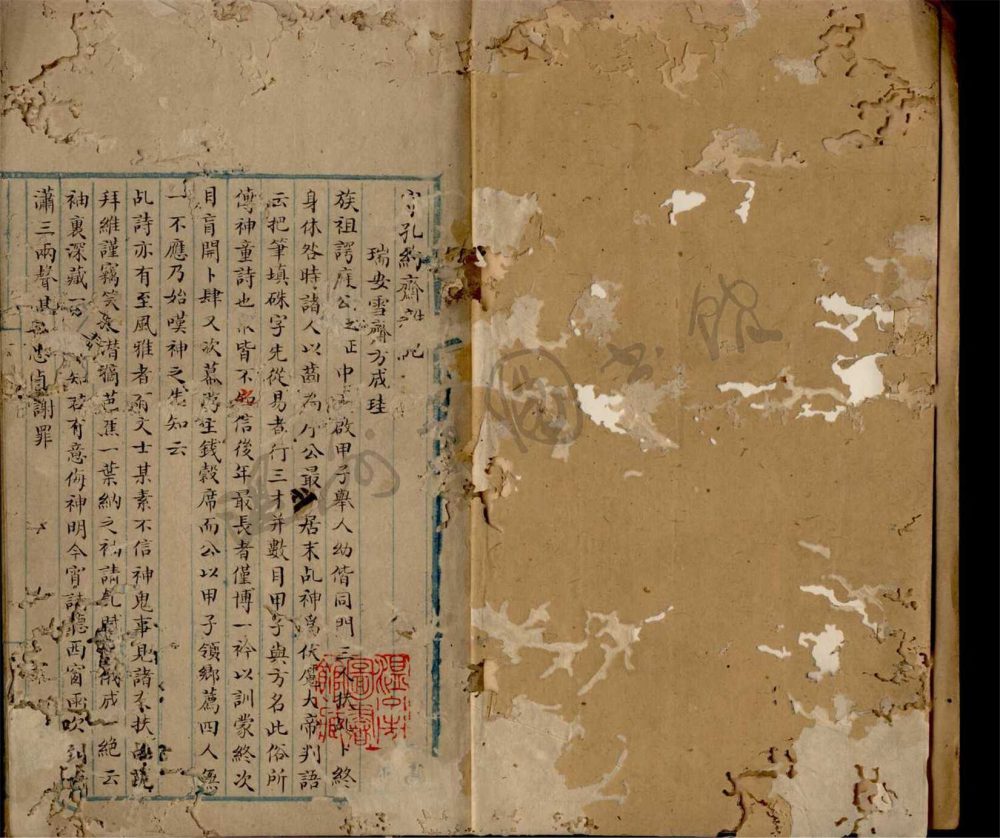 守孔約齋雜記
瑞安雪齋方成珪
族祖諤庵公之正中 啟甲子舉人幼偕同門三 扶 卜終
身休咎時諸人以齒為 公最 居末乩神為伏魔大帝判語
云把筆填硃字先從易者行三才并數目甲子與方名此俗所
傳神童詩也 皆不 信後年最長者僅博一衿以訓蒙終次
目盲開卜肆又次 主錢穀席而公以甲子領鄉薦四人無
一不應乃始嘆神之先知云
乩詩亦有至風雅者有文士某素不信神鬼事見諸友扶乩跪
拜維謹竊笑之潛摘芭蕉一葉納之袖請乩賦 俄成 絕云
袖裏深藏一 知君有意侮神明今宵請聽西窗雨吹到瀟
瀟三兩聲 謝罪
溫州圖書館藏